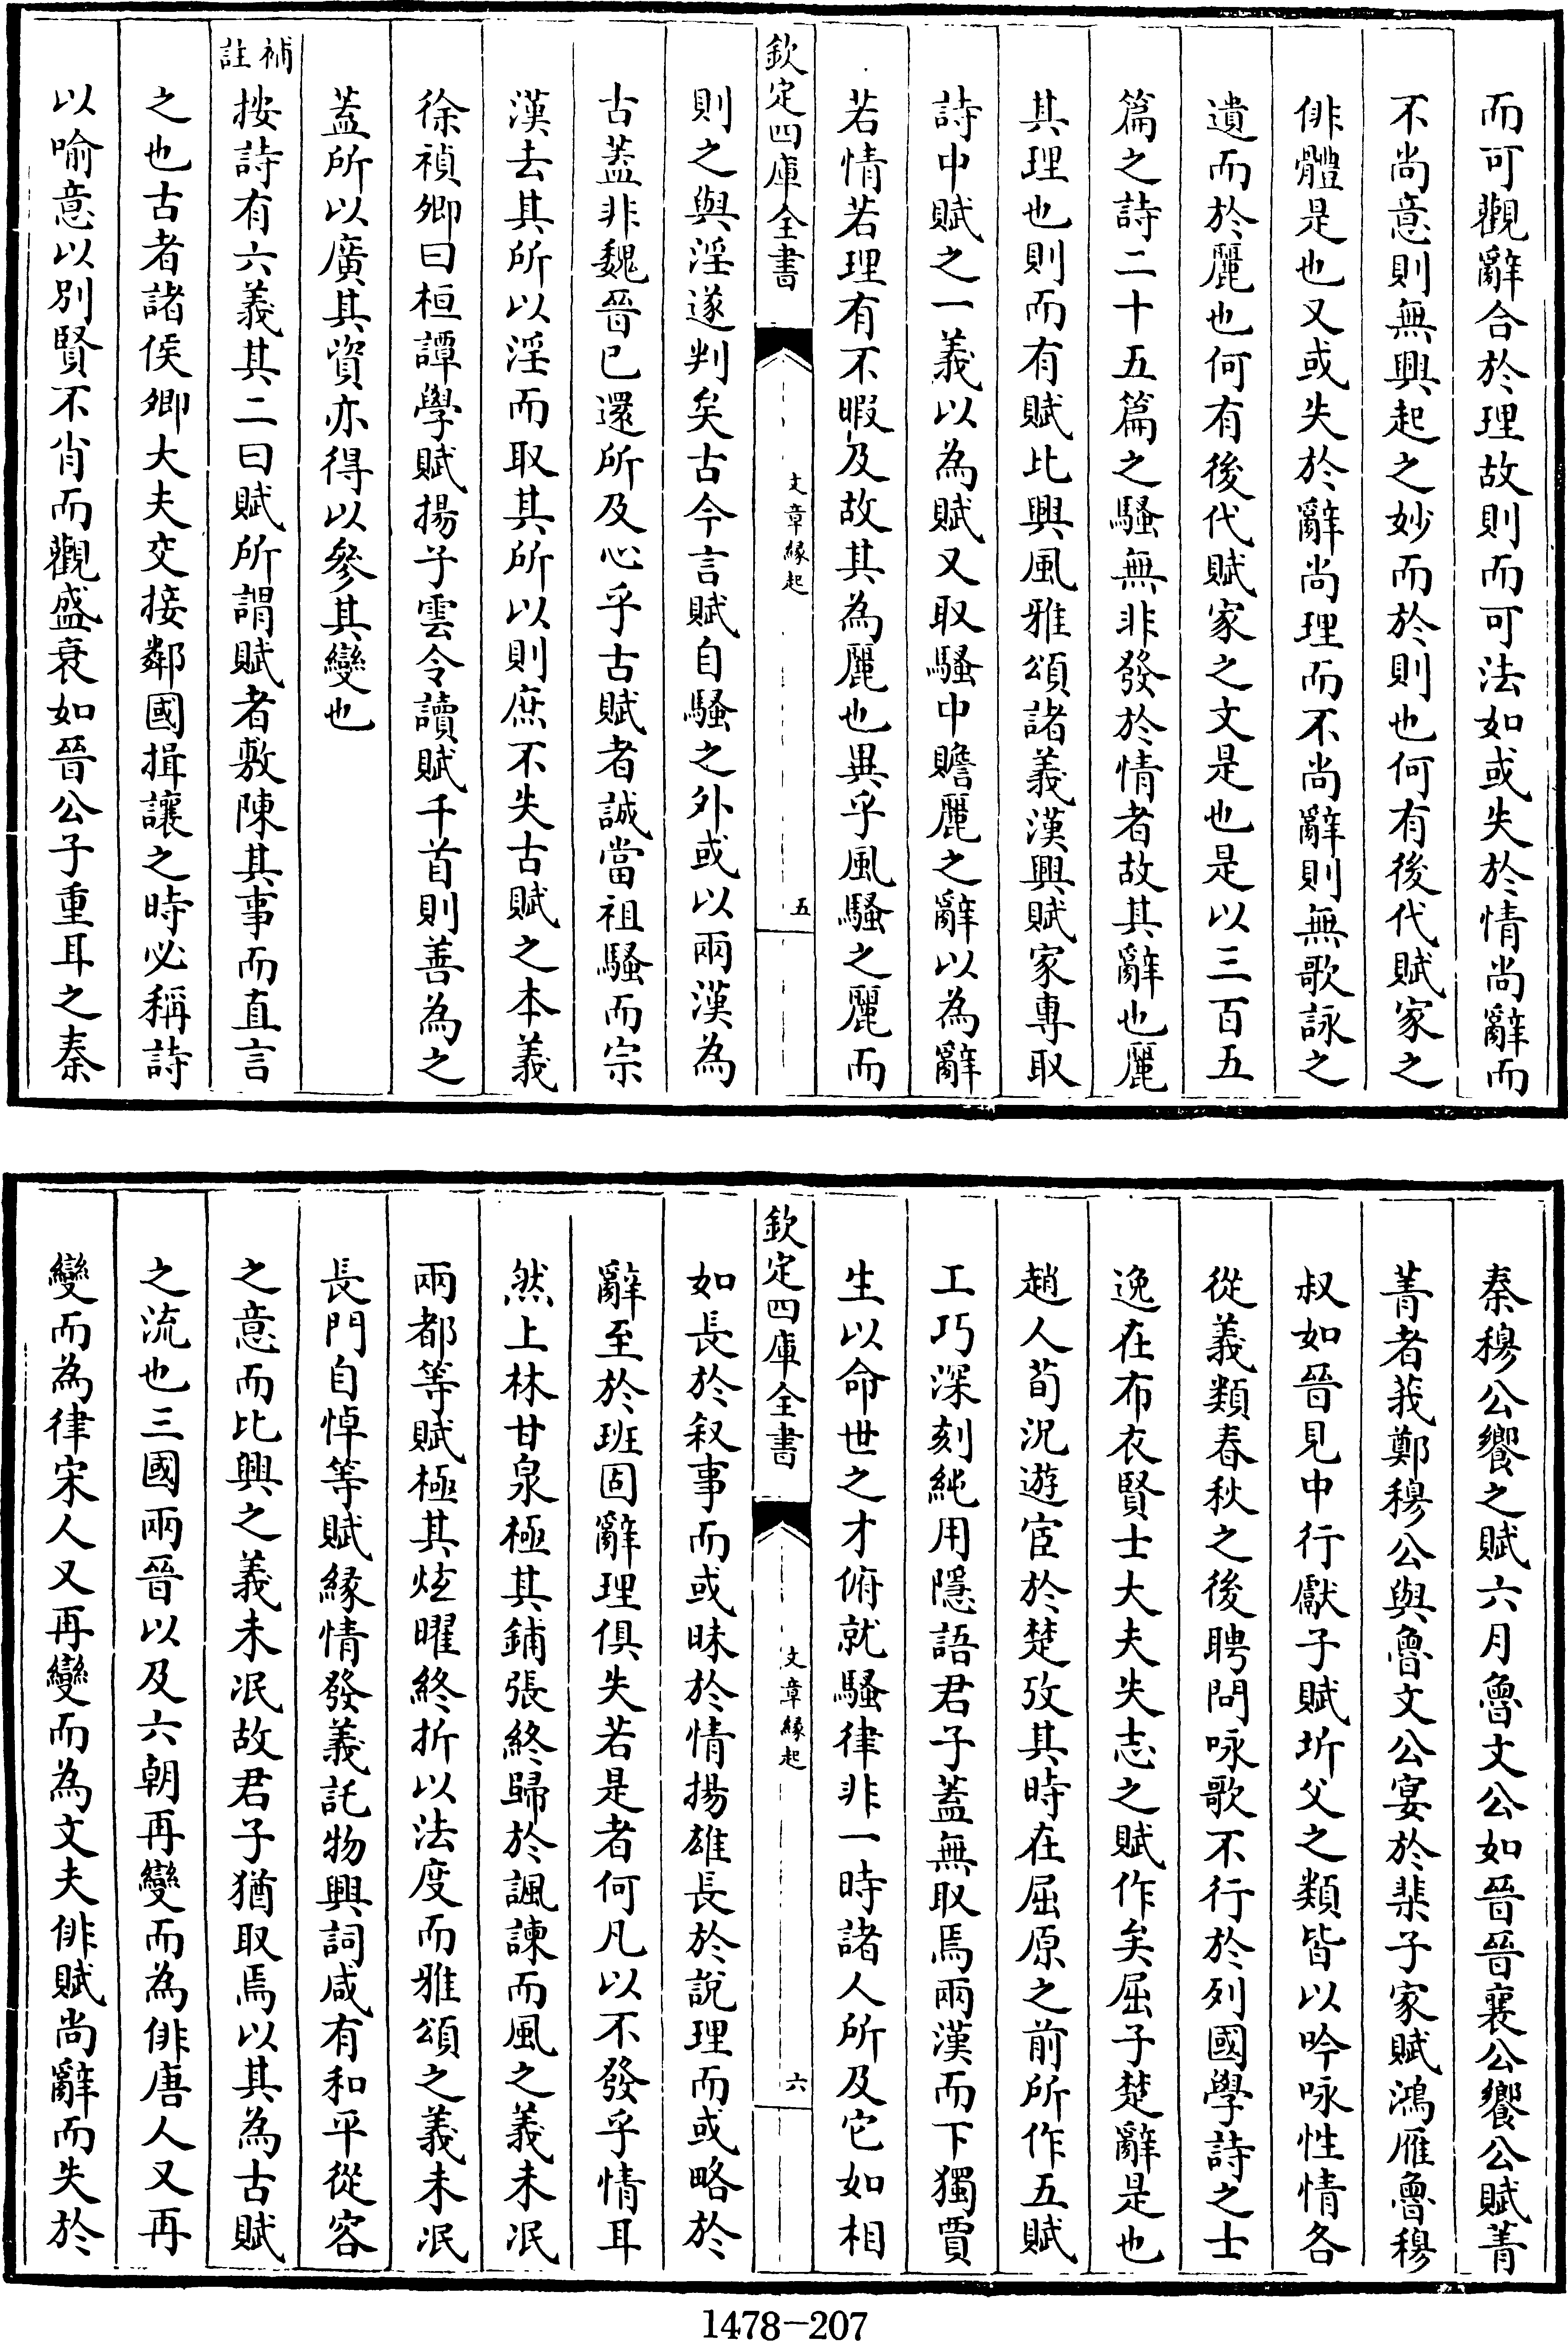 而可觀辭合於理故則而可法如或失於情尚辭而
不尚意則無興起之妙而於則也何有後代賦家之
俳體是也又或失於辭尚理而不尚辭則無歌詠之
遺而於麗也何有後代賦家之文是也是以三百五
篇之詩二十五篇之騷無非發於情者故其辭也麗
其理也則而有賦比興風雅頌諸義漢興賦家專取
詩中賦之一義以為賦又取騷中贍麗之辭以為辭
若情若理有不暇及故其為麗也異乎風騷之麗而
欽定四庫全書
文章緣起
五
則之與淫遂判矣古今言賦自騷之外或以兩漢為
古蓋非魏晉已還所及心乎古賦者誠當祖騷而宗
漢去其所以淫而取其所以則庶不失古賦之本義
徐禎卿曰桓譚學賦揚子雲令讀賦千首則善為之
蓋所以廣其資亦得以參其變也
補註
按詩有六義其二曰賦所謂賦者敷陳其事而直言
之也古者諸侯卿大夫交接鄰國揖讓之時必稱詩
以喻意以別賢不肖而觀盛衰如晉公子重耳之秦
秦穆公饗之賦六月魯文公如晉晉襄公饗公賦菁
菁者莪鄭穆公與魯文公宴於棐子家賦鴻雁魯穆
叔如晉見中行獻子賦圻父之類皆以吟咏性情各
從義類春秋之後聘問咏歌不行於列國學詩之士
逸在布衣賢士大夫失志之賦作矣屈子楚辭是也
趙人荀況遊宦於楚攷其時在屈原之前所作五賦
工巧深刻純用隱語君子蓋無取焉兩漢而下獨賈
生以命世之才俯就騷律非一時諸人所及它如相
欽定四庫全書
文章緣起
六
如長於叙事而或昧於情揚雄長於說理而或略於
辭至於班固辭理俱失若是者何凡以不發乎情耳
然上林甘泉極其鋪張終歸於諷諫而風之義未泯
兩都等賦極其炫曜終折以法度而雅頌之義未泯
長門自悼等賦緣情發義託物興詞咸有和平從容
之意而比興之義未泯故君子猶取焉以其為古賦
之流也三國兩晉以及六朝再變而為俳唐人又再
變而為律宋人又再變而為文夫俳賦尚辭而失於
1478-207